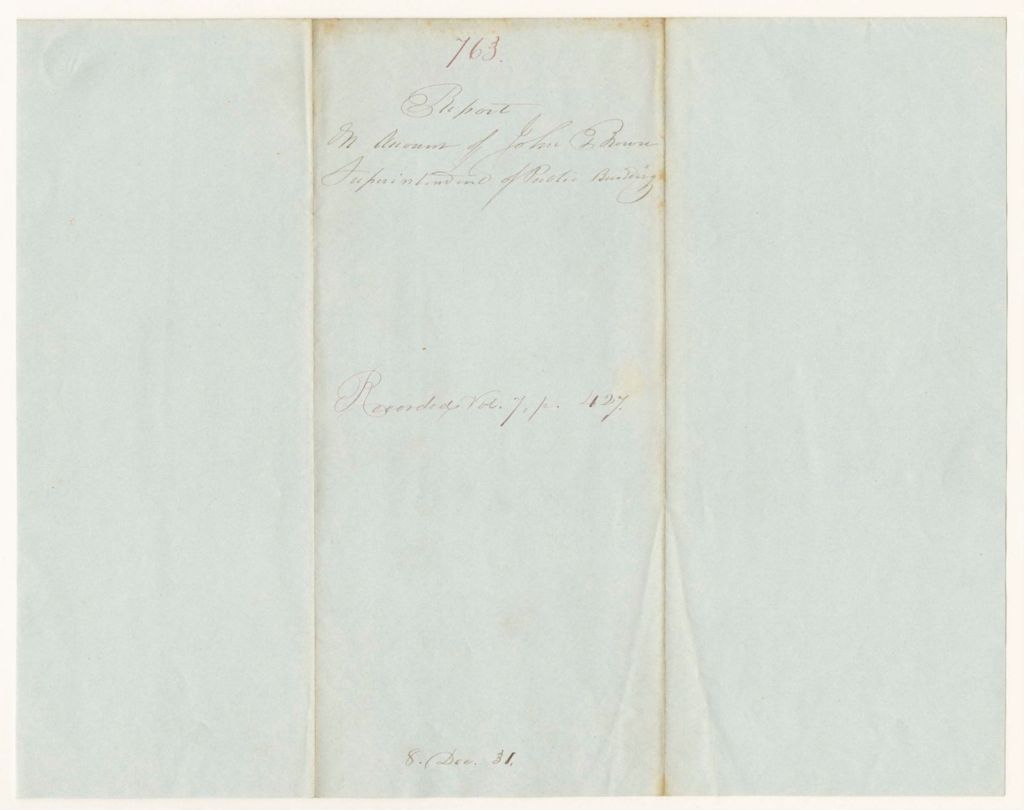 763.
Report
On Account of John Brown
Superintendent of Public Buildings
Recorded Vol. 7, p. 427.
8. Dec. 31.